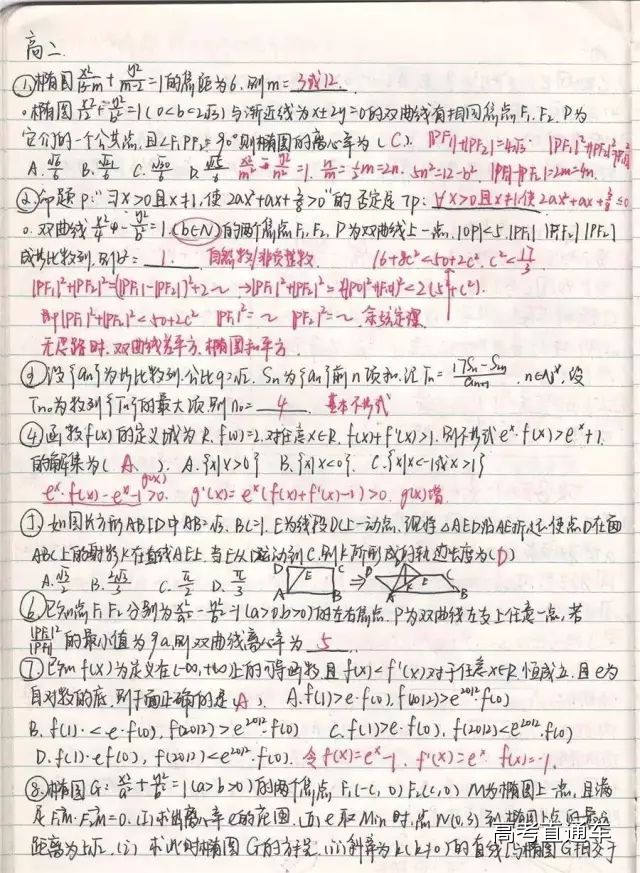 高二.
①椭圆x²/(15-m)+y²/(m-2)=1的焦距为6.则m=3或12.
。椭圆x²/12+y²/b²=1(0<b<2√3)与渐近线为x+2y=0的双曲线有相同焦点F₁.F₂.P为
它们的一个公共点.且∠F₁PF₂=90°则椭圆的离心率为(C). |PF₁|+|PF₂|=4√3
A. B. C. D. =1. n/m= 5m=2n. 5n²=12-b². |PF₁|-|PF₂|=2m=4n.
②命题p:"∃x>0且x≠1,使2ax²+ax+3/8>0"的否定是¬p:∀x>0且x≠1,使2ax²+ax+3/8≤0
。双曲线x²/4-y²/b²=1.(b∈N)的两个焦点F₁.F₂,P为双曲线上一点.|OP|<5.|PF₁| |F₁F₂| |PF₂|
成等比数列,则b²=1. 自然数/非负整数. 16+8c²<50+2c². c²<17/3
|PF₁|²+|PF₂|²=(|PF₁|-|PF₂|)²+2~ →|PF₁|²+|PF₂|² <2(5²+c²).
即|PF₁|²+|PF₂|²<50+2c² |PF₁|²=~ |PF₂|²=~ 余弦定理.
无思路时.双曲线差平方.椭圆和平方.
③设{an}为等比数列.公比q=√2. Sn为{an}前n项和.记Tn=(17Sn-S2n)/an+1. n∈N*.设
Tn₀为数列{Tn}的最大项.则n₀=4. 基本不等式
④函数f(x)的定义域为R.f(0)=2.对任意x∈R.f(x)+f'(x)>1.则不等式eˣ·f(x)>eˣ+1.
的解集为(A). A.{x|x>0} B.{x|x<0}. C.{x|x<-1或x>1}
g(x)
eˣ·f(x)-eˣ-1>0. g'(x)=eˣ(f(x)+f'(x)-1)>0. g(x)增
如图长方形ABCD中AB=√3.BC=1.E为线段DC上一动点.现将△AED沿AE折起.使点D在面
ABC上的射影K在直线AE上.当E从D运动到C.则K所形成的轨迹长度为(D)
A.√3/2 B.2√3/3 C.π/2 D.π/3 D C E A B D E C A K B
⑥已知点F₁F₂分别为x²/a²-y²/b²=1(a>0b>0)的左右焦点.P为双曲线左支上任意一点.若
|PF₂|²/|PF₁|的最小值为9a.则双曲线离心率为5.
⑦已知f(x)为定义在(-∞,+∞)上的可导函数且f(x)<f'(x)对于任意x∈R.恒成立.且e为
自对数的底.则下面正确的是(A). A.f(1)>e·f(0),f(2012)>e²⁰¹²·f(0)
B.f(1)·<e·f(0),f(2012)>e²⁰¹²·f(0) C.f(1)>e·f(0),f(2012)<e²⁰¹²·f(0)
D.f(1)·ef(0),f(2012)<e²⁰¹²·f(0). 令f(x)=eˣ-1. f'(x)=eˣ f(x)=-1.
⑧椭圆G:x²/a²+y²/b²=1(a>b>0)的两个焦点F₁(-c,0)F₂(c,0) M为椭圆上一点,且满
足F₁M·F₂M=0.(I)求出离心率e的范围.(II)e取Min时,点N(0,3)到椭圆上点的最远
距离为5√2.(i)求此时椭圆G的方程.(ii)斜率为k(k≠0)的直线L与椭圆G相交于
高考直通车